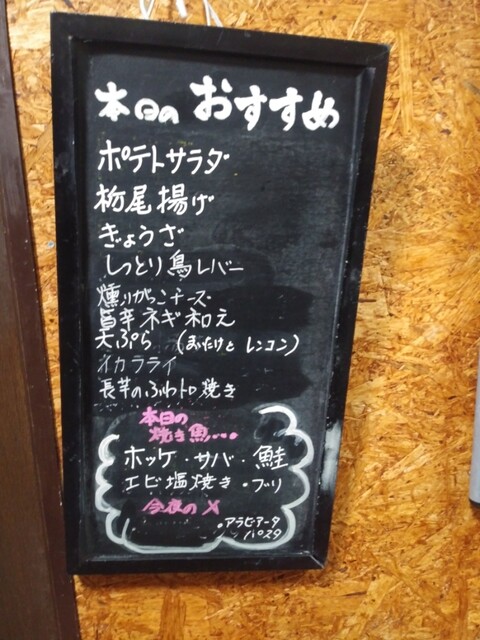 本日の おすすめ
ポテトサラダ
栃尾揚げ
ぎょうざ
しっとり鳥レバー
燻りがっこチーズ
旨辛ネギ和え
天ぷら (まいたけと レンコン)
イカフライ
長芋のふわトロ焼き
本日の
焼き魚...
ホッケ・サバ・鮭
エビ塩焼き・ブリ
今夜の〆
・アラビアータ
パスタ